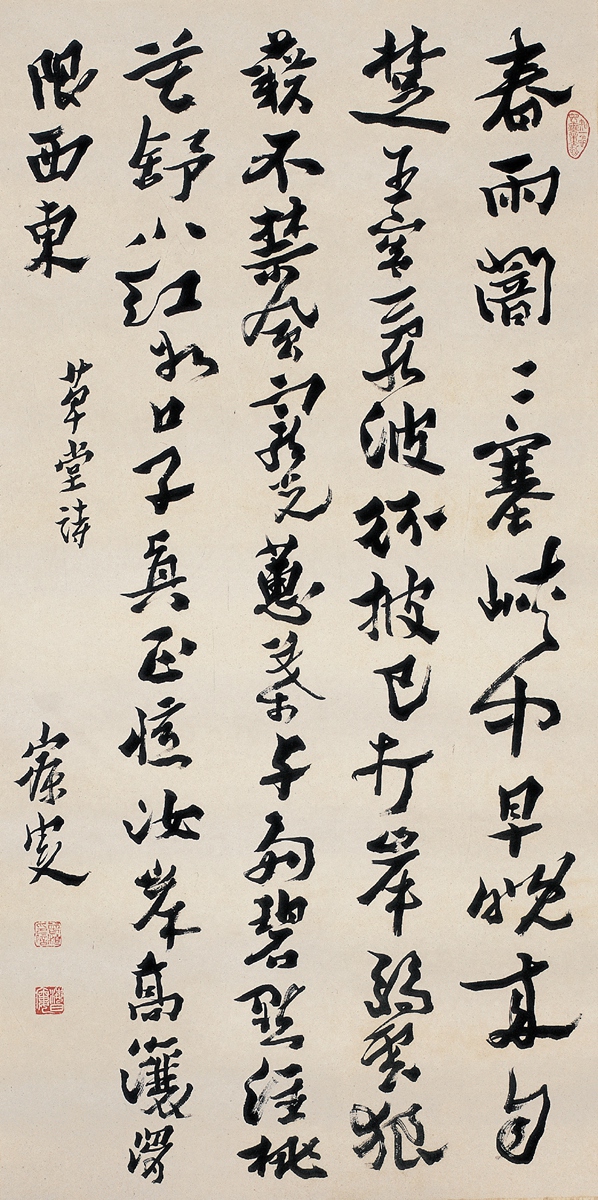 春雨闇〻塞峽中早晚來自
楚王宮亂波紛披已打岸弱雲狼
藉不禁風寵光蕙葉与多碧點注桃
花舒小紅谷口子真正憶汝岸高瀼滑
限西東
草堂詩
寐叟